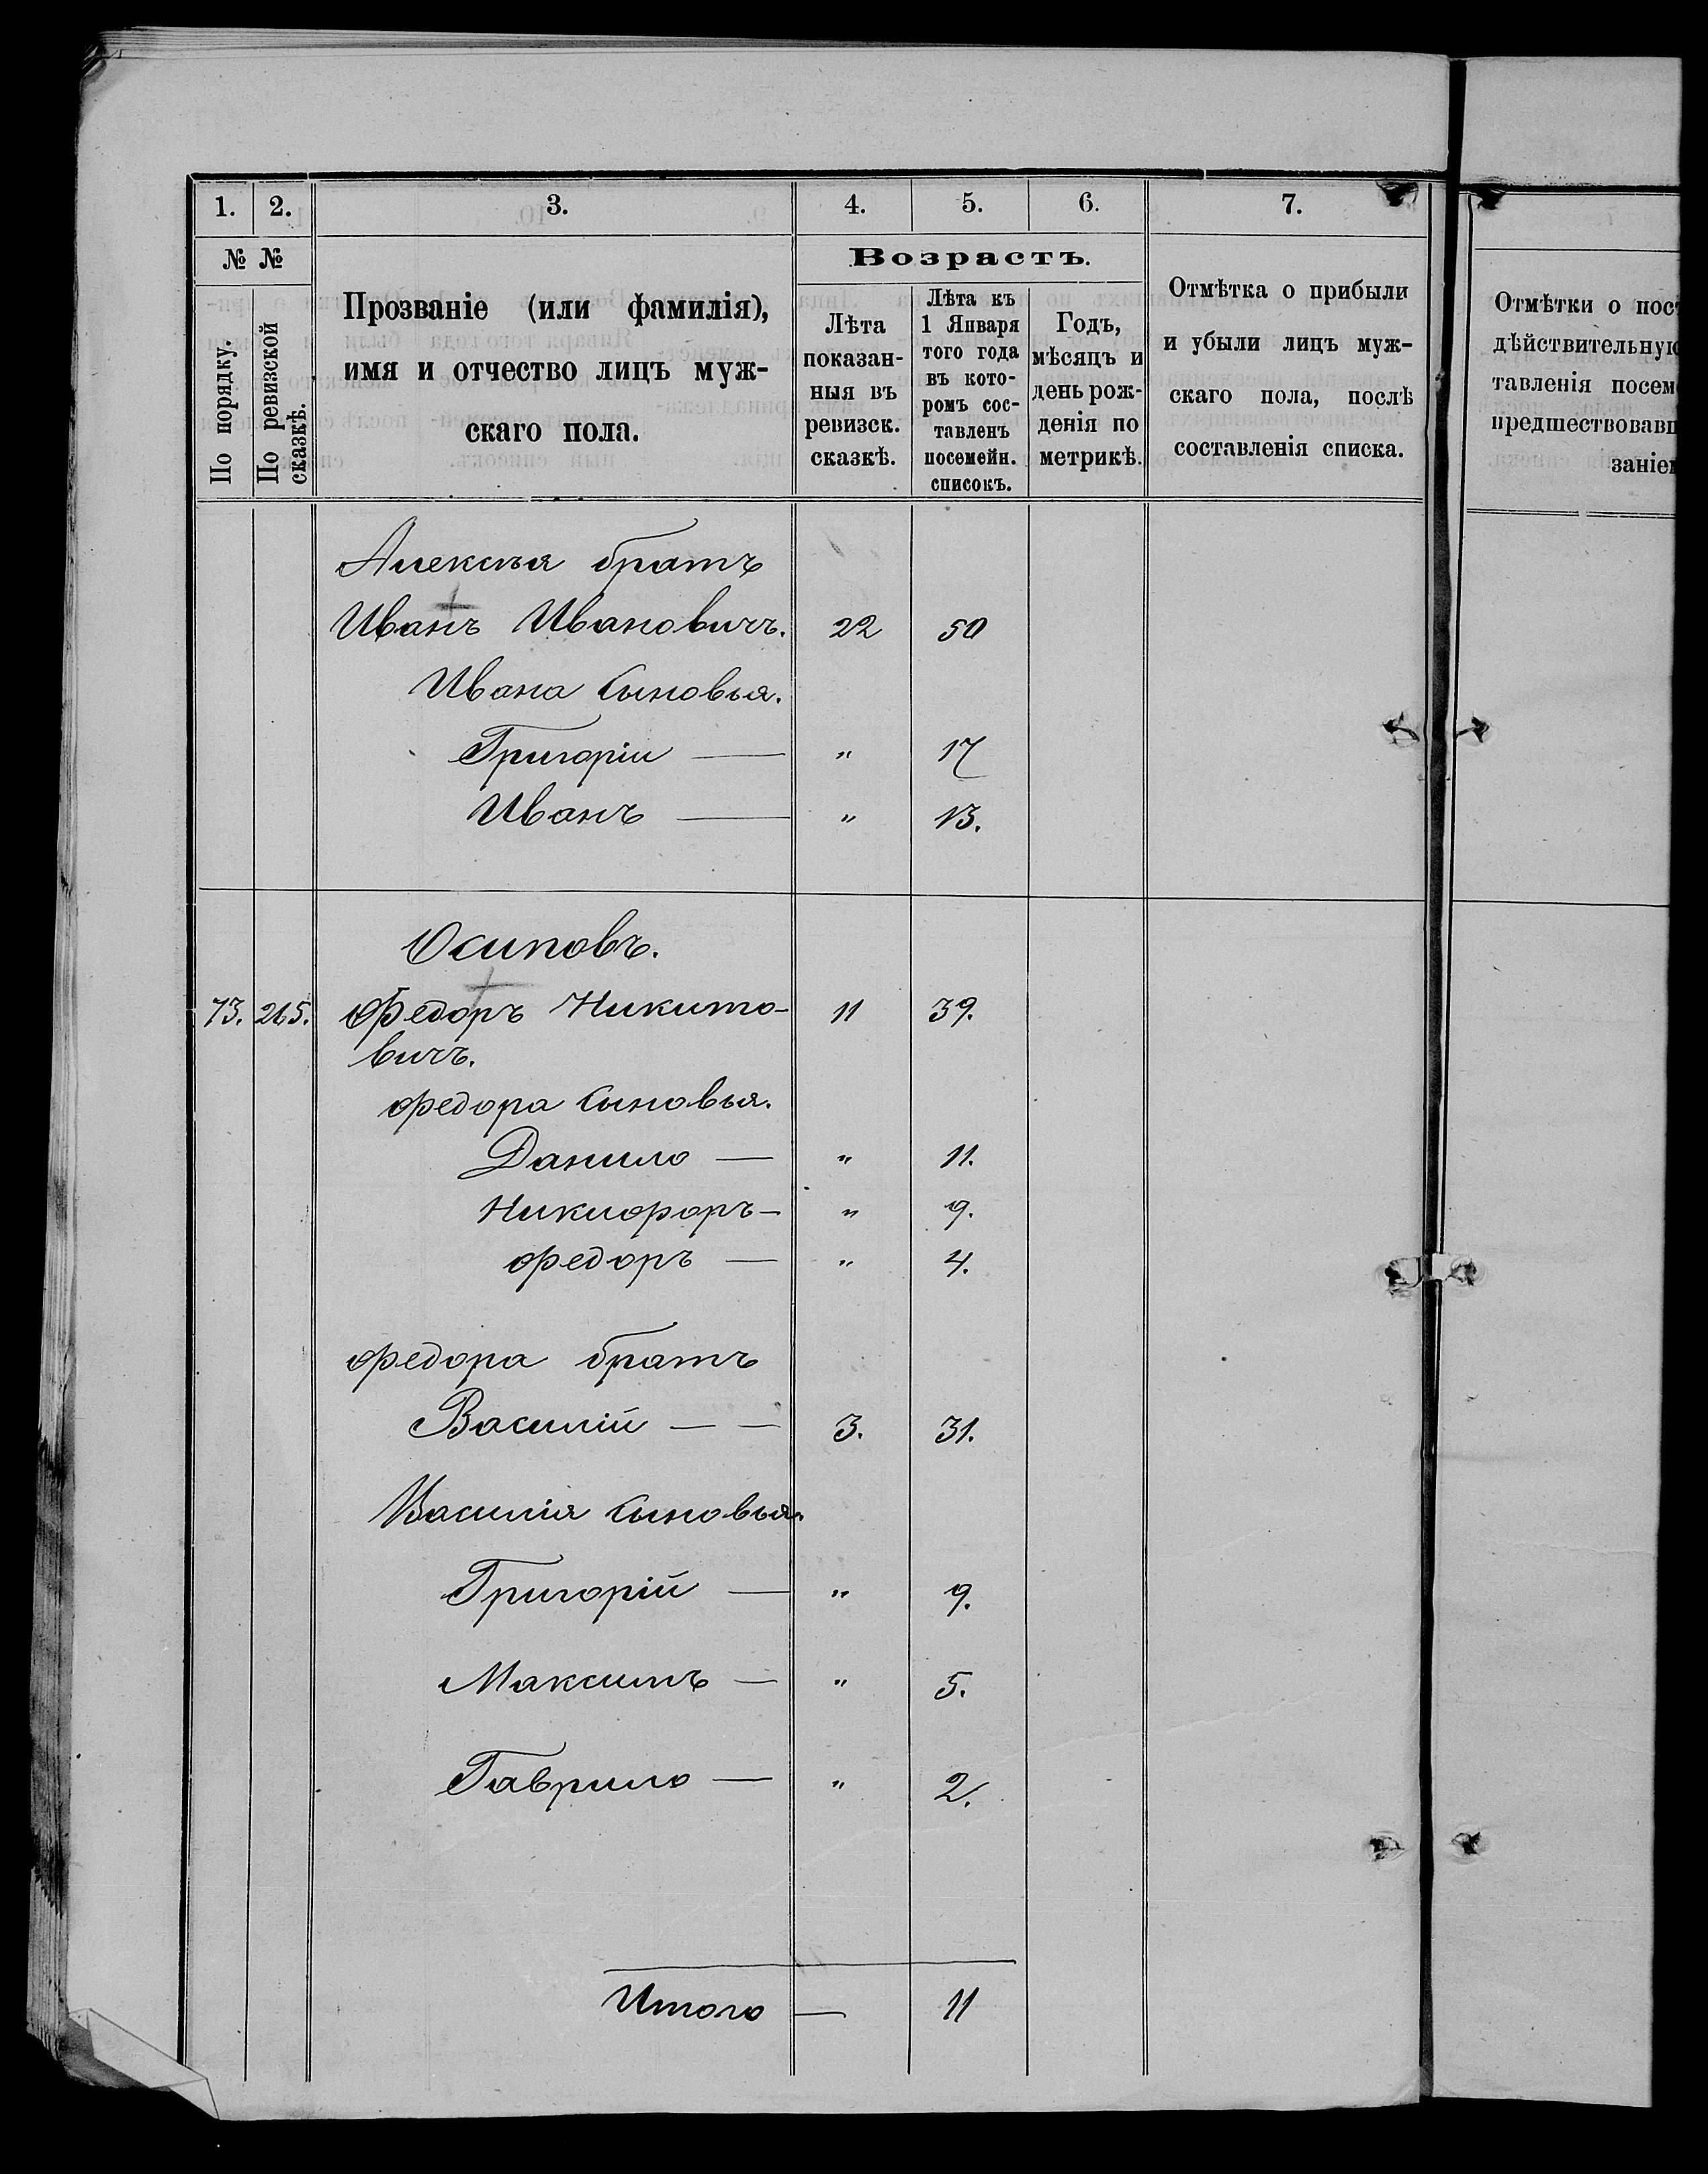 1. 2. 3. 4. 5. 6. 7.
№ №
По порядку.
По ревизской сказкѣ.
Прозваніе (или фамилія),
имя и отчество лицъ муж-
скаго пола.
Возрастъ.
Лѣта
показан-
ныя въ
ревизск.
сказкѣ.
Лѣта къ
1 Января
того года
въ кото-
ромъ сос-
тавленъ
посемейн.
списокъ.
Годъ,
мѣсяцъ и
день рож-
денія по
метрикѣ.
Отмѣтка о прибыли
и убыли лицъ муж-
скаго пола, послѣ
составленія списка.
Отмѣтки о пос
дѣйствительную
тавленія посем
предшествовавш
заніем
Алексѣя братъ
Иванъ Ивановичъ. 22 50
Ивана Сыновья.
Григоріи — " 17
Иванъ — " 13.
Осиповъ.
73. 265. Федоръ Никито- 11 39.
вичъ.
Федора Сыновья.
Данило — " 11.
Никифоръ - " 9.
Федоръ — " 4.
Федора братъ
Василій — — 3. 31.
Василія Сыновья.
Григорій — " 9.
Максимъ — " 5.
Гаврило — " 2.
Итого — 11